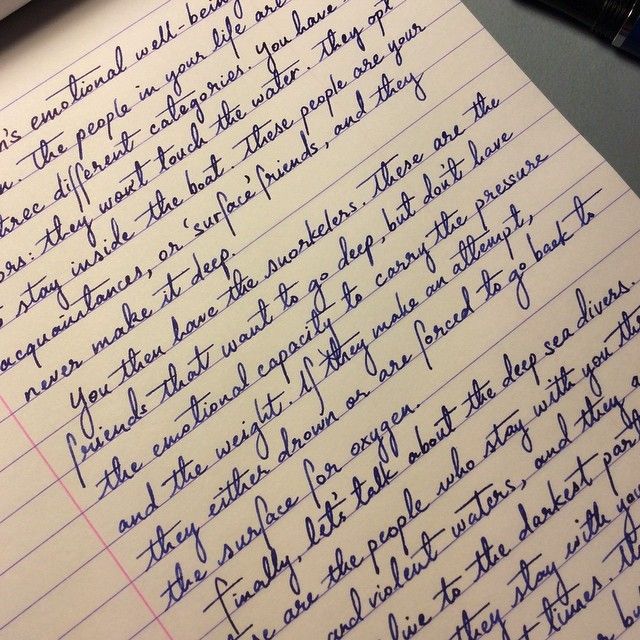 n's emotional well-being
n. The people in your life are
three different catagories. You have
ors: they won't touch the water. they opt
stay inside the boat. these people are your
acquaintances, or 'surface' friends, and they
never make it deep.
You then have the snorkelers. these are the
friends that want to go deep, but don't have
the emotional capacity to carry the pressure
and the weight. if they make an attempt,
they either drown or are forced to go back to
the surface for oxygen.
finally, let's talk about the deep sea divers.
se are the people who stay with you
and violent waters, and they
live to the darkest
they stay with you
times.